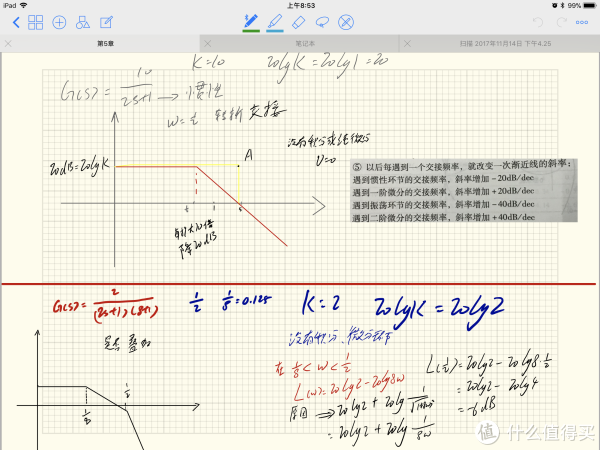 iPad
上午8:53
99%
第5章
笔记本
扫描 2017年11月14日 下午4.25
K=10
20lgK=20lg1=20
G(s)= 10 / 2s+1 → 惯性
w=½ 转折 交接
没有积分或纯微分
υ=0
20dB=20lgK
A
降20dB
⑤ 以后每遇到一个交接频率，就改变一次渐近线的斜率：
遇到惯性环节的交接频率，斜率增加－20dB/dec
遇到一阶微分的交接频率，斜率增加＋20dB/dec
遇到振荡环节的交接频率，斜率增加－40dB/dec
遇到二阶微分的交接频率，斜率增加＋40dB/dec
G(s)= 2 / (2s+1)(8s+1)
1/2 1/8=0.125
K=2
20lgK=20lg2
叠加
没有积分、微分环节
在 1/8<w<1/2
L(w)=20lg2-20lg8w
原因 ⇒ 20lg2+20lg
=20lg2+20lg 1/8w
L(½)=20lg2-20lg8·½
=20lg2-20lg4
=-6dB
1/8
1/2
值 什么值得买